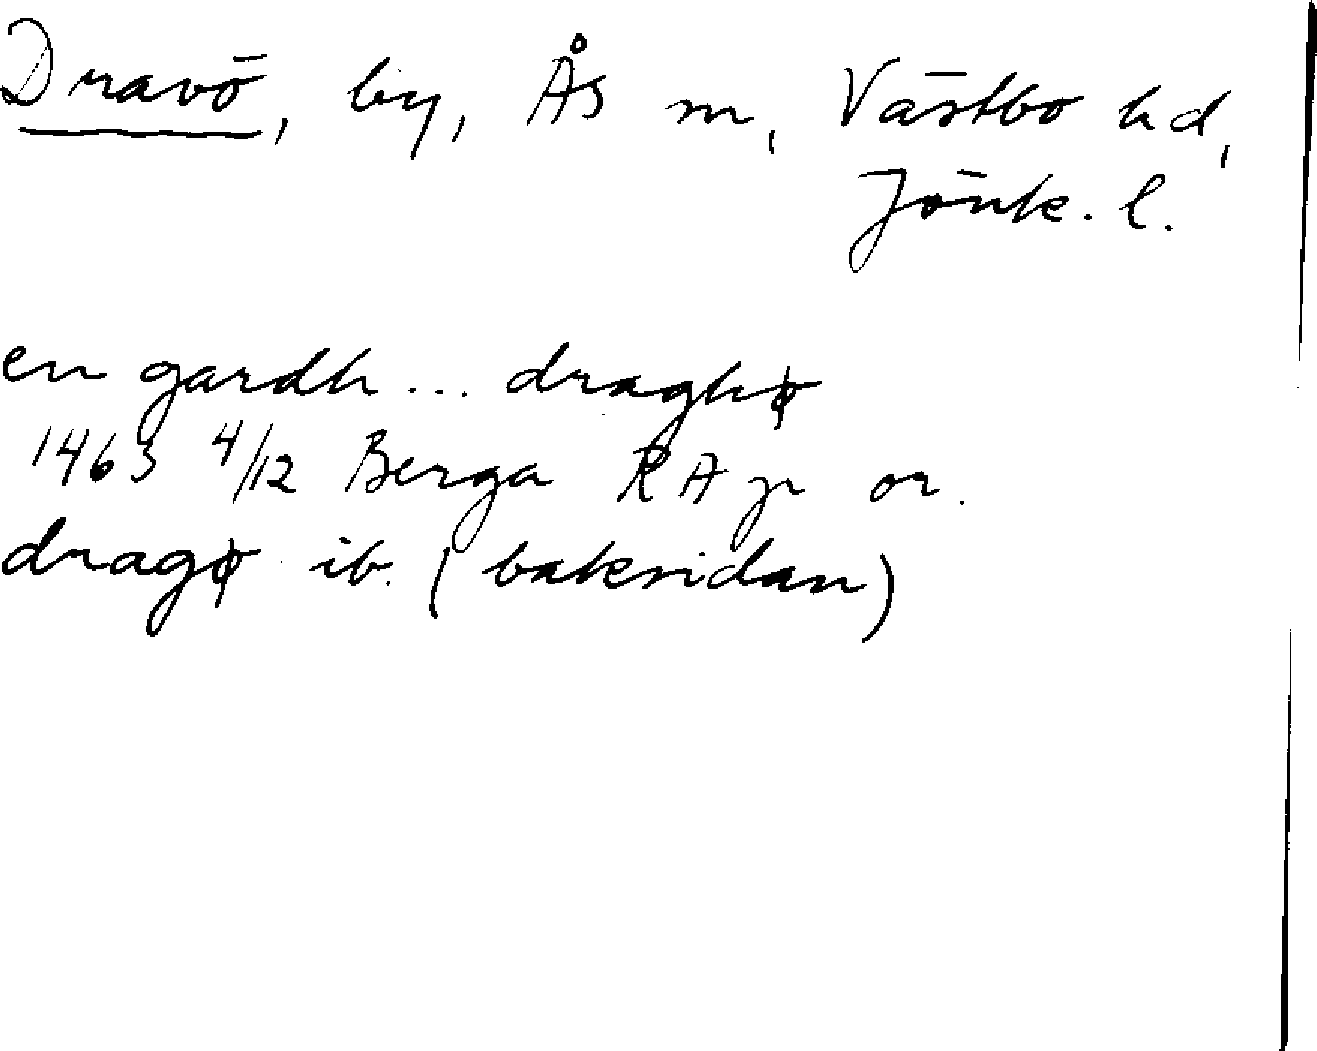 Dravö, by, Ås sn, Västbo hd,
Jönk. l.
en gardh ... draghø
1463 4/12 Berga RAp or.
dragø ib. (baksidan)